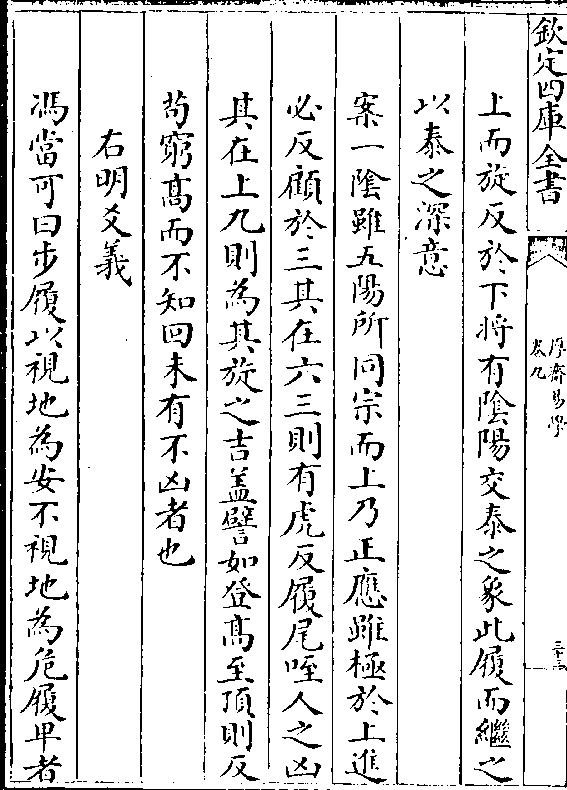 欽定四庫全書
厚齋易學
卷九
三十三
上而旋反於下將有陰陽交泰之象此履而繼之
以泰之深意
案一陰雖五陽所同宗而上乃正應雖極於上進
必反顧於三其在六三則有虎反履尾咥人之凶
其在上九則為其旋之吉盖譬如登髙至頂則反
苟窮髙而不知回未有不凶者也
右明爻義
馮當可曰步履以視地為安不視地為危履卑者